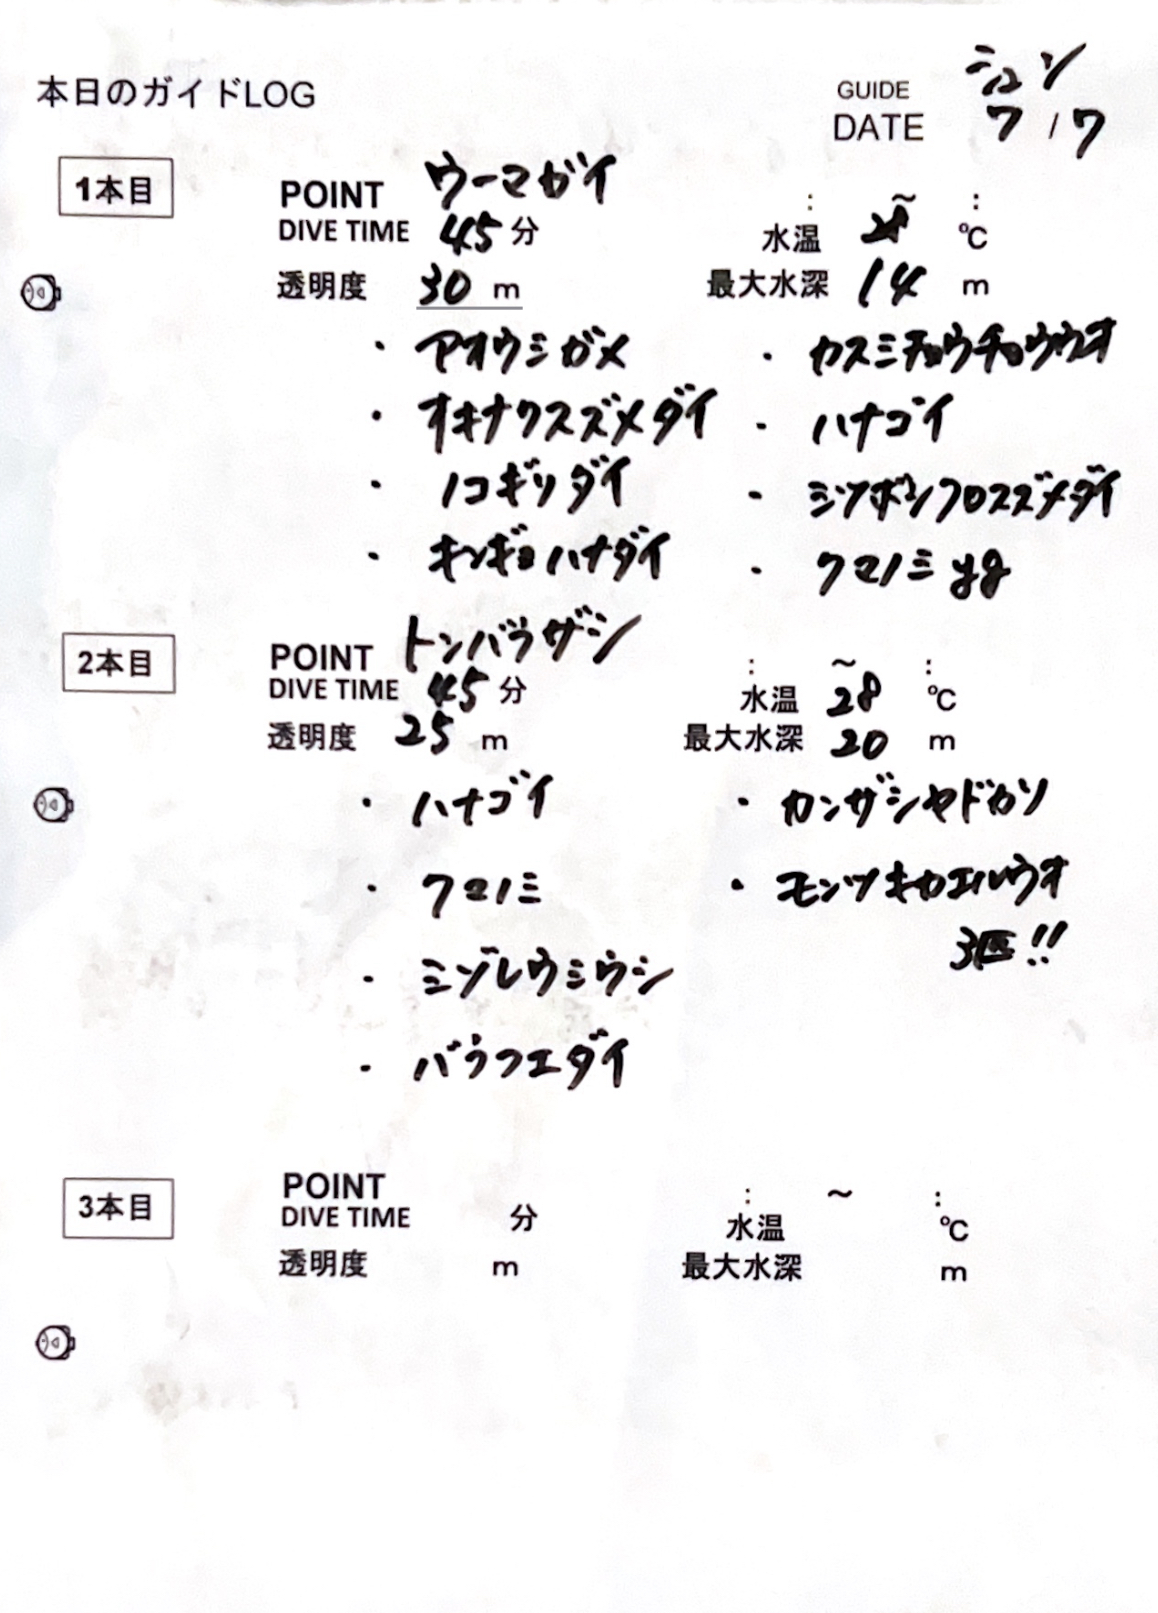 本日のガイドLOG
GUIDE シュン
DATE 7/7
1本目
POINT ウーマガイ : ~ :
DIVE TIME 45分 水温 ℃
透明度 30 m 最大水深 14 m
・ アオウミガメ ・ カスミチョウチョウウオ
・ オキナワスズメダイ ・ ハナゴイ
・ ノコギリダイ ・ ミツボシクロスズメダイ
・ キンギョハナダイ ・ クマノミ yg
2本目
POINT トンバラザシ : ~ :
DIVE TIME 45分 水温 28 ℃
透明度 25 m 最大水深 20 m
・ ハナゴイ ・ カンザシヤドカリ
・ クマノミ ・ モンツキカエルウオ
3匹!!
・ ミゾレウミウシ
・ バラフエダイ
3本目
POINT : ~ :
DIVE TIME 分 水温 ℃
透明度 m 最大水深 m